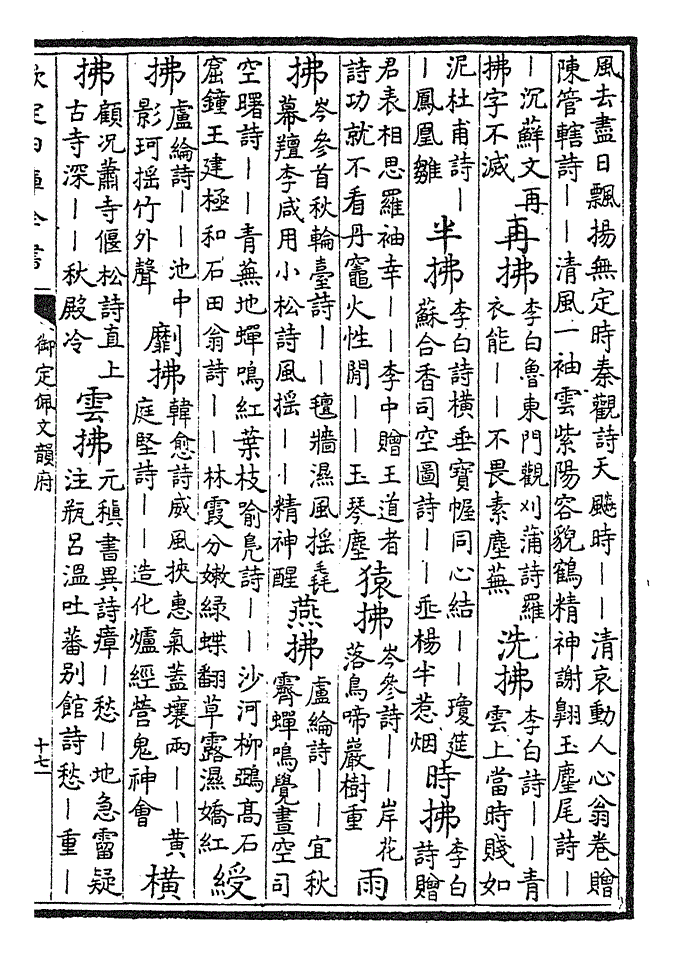 風去盡日飄揚無定時秦觀詩天飇時——清哀動人心翁卷贈
陳管轄詩——清風一袖雲紫陽容貌鶴精神謝翺玉麈尾詩—
—沉蘇文再
拂字不滅
再拂
李白魯東門觀刈蒲詩羅
衣能——不畏素塵蕪
洗拂
李白詩——青
雲上當時賤如
泥杜甫詩—
—鳳凰雛
半拂
李白詩横垂寶幄同心結——瓊筵
蘇合香司空圖詩——垂楊半惹烟
時拂
李白
詩贈
君表相思羅袖幸——李中贈王道者
詩功就不看丹竈火性閒——玉琴塵
猿拂
岑參詩——岸花
落鳥啼巖樹重
雨
拂
岑參首秋輪臺詩——氊牆濕風揺毳
幕羶李咸用小松詩風揺——精神醒
燕拂
盧綸詩——宜秋
霽蟬鳴覺晝空司
空曙詩——青蕪地蟬鳴紅葉枝喻鳧詩——沙河柳鵶髙石
窟鐘王建極和石田翁詩——林霞分嫩緑蝶翻草露濕嬌紅
綬
拂
盧綸詩——池中
影珂揺竹外聲
劘拂
韓愈詩威風挾惠氣蓋壤兩——黄
庭堅詩——造化爐經營鬼神會
横
拂
顧况蕭寺偃松詩直上
古寺深——秋殿冷
雲拂
元稹書異詩瘴—愁—地急霤疑
注瓶呂温吐蕃别館詩愁—重—
欽定四庫全書
御定佩文韻府
十七